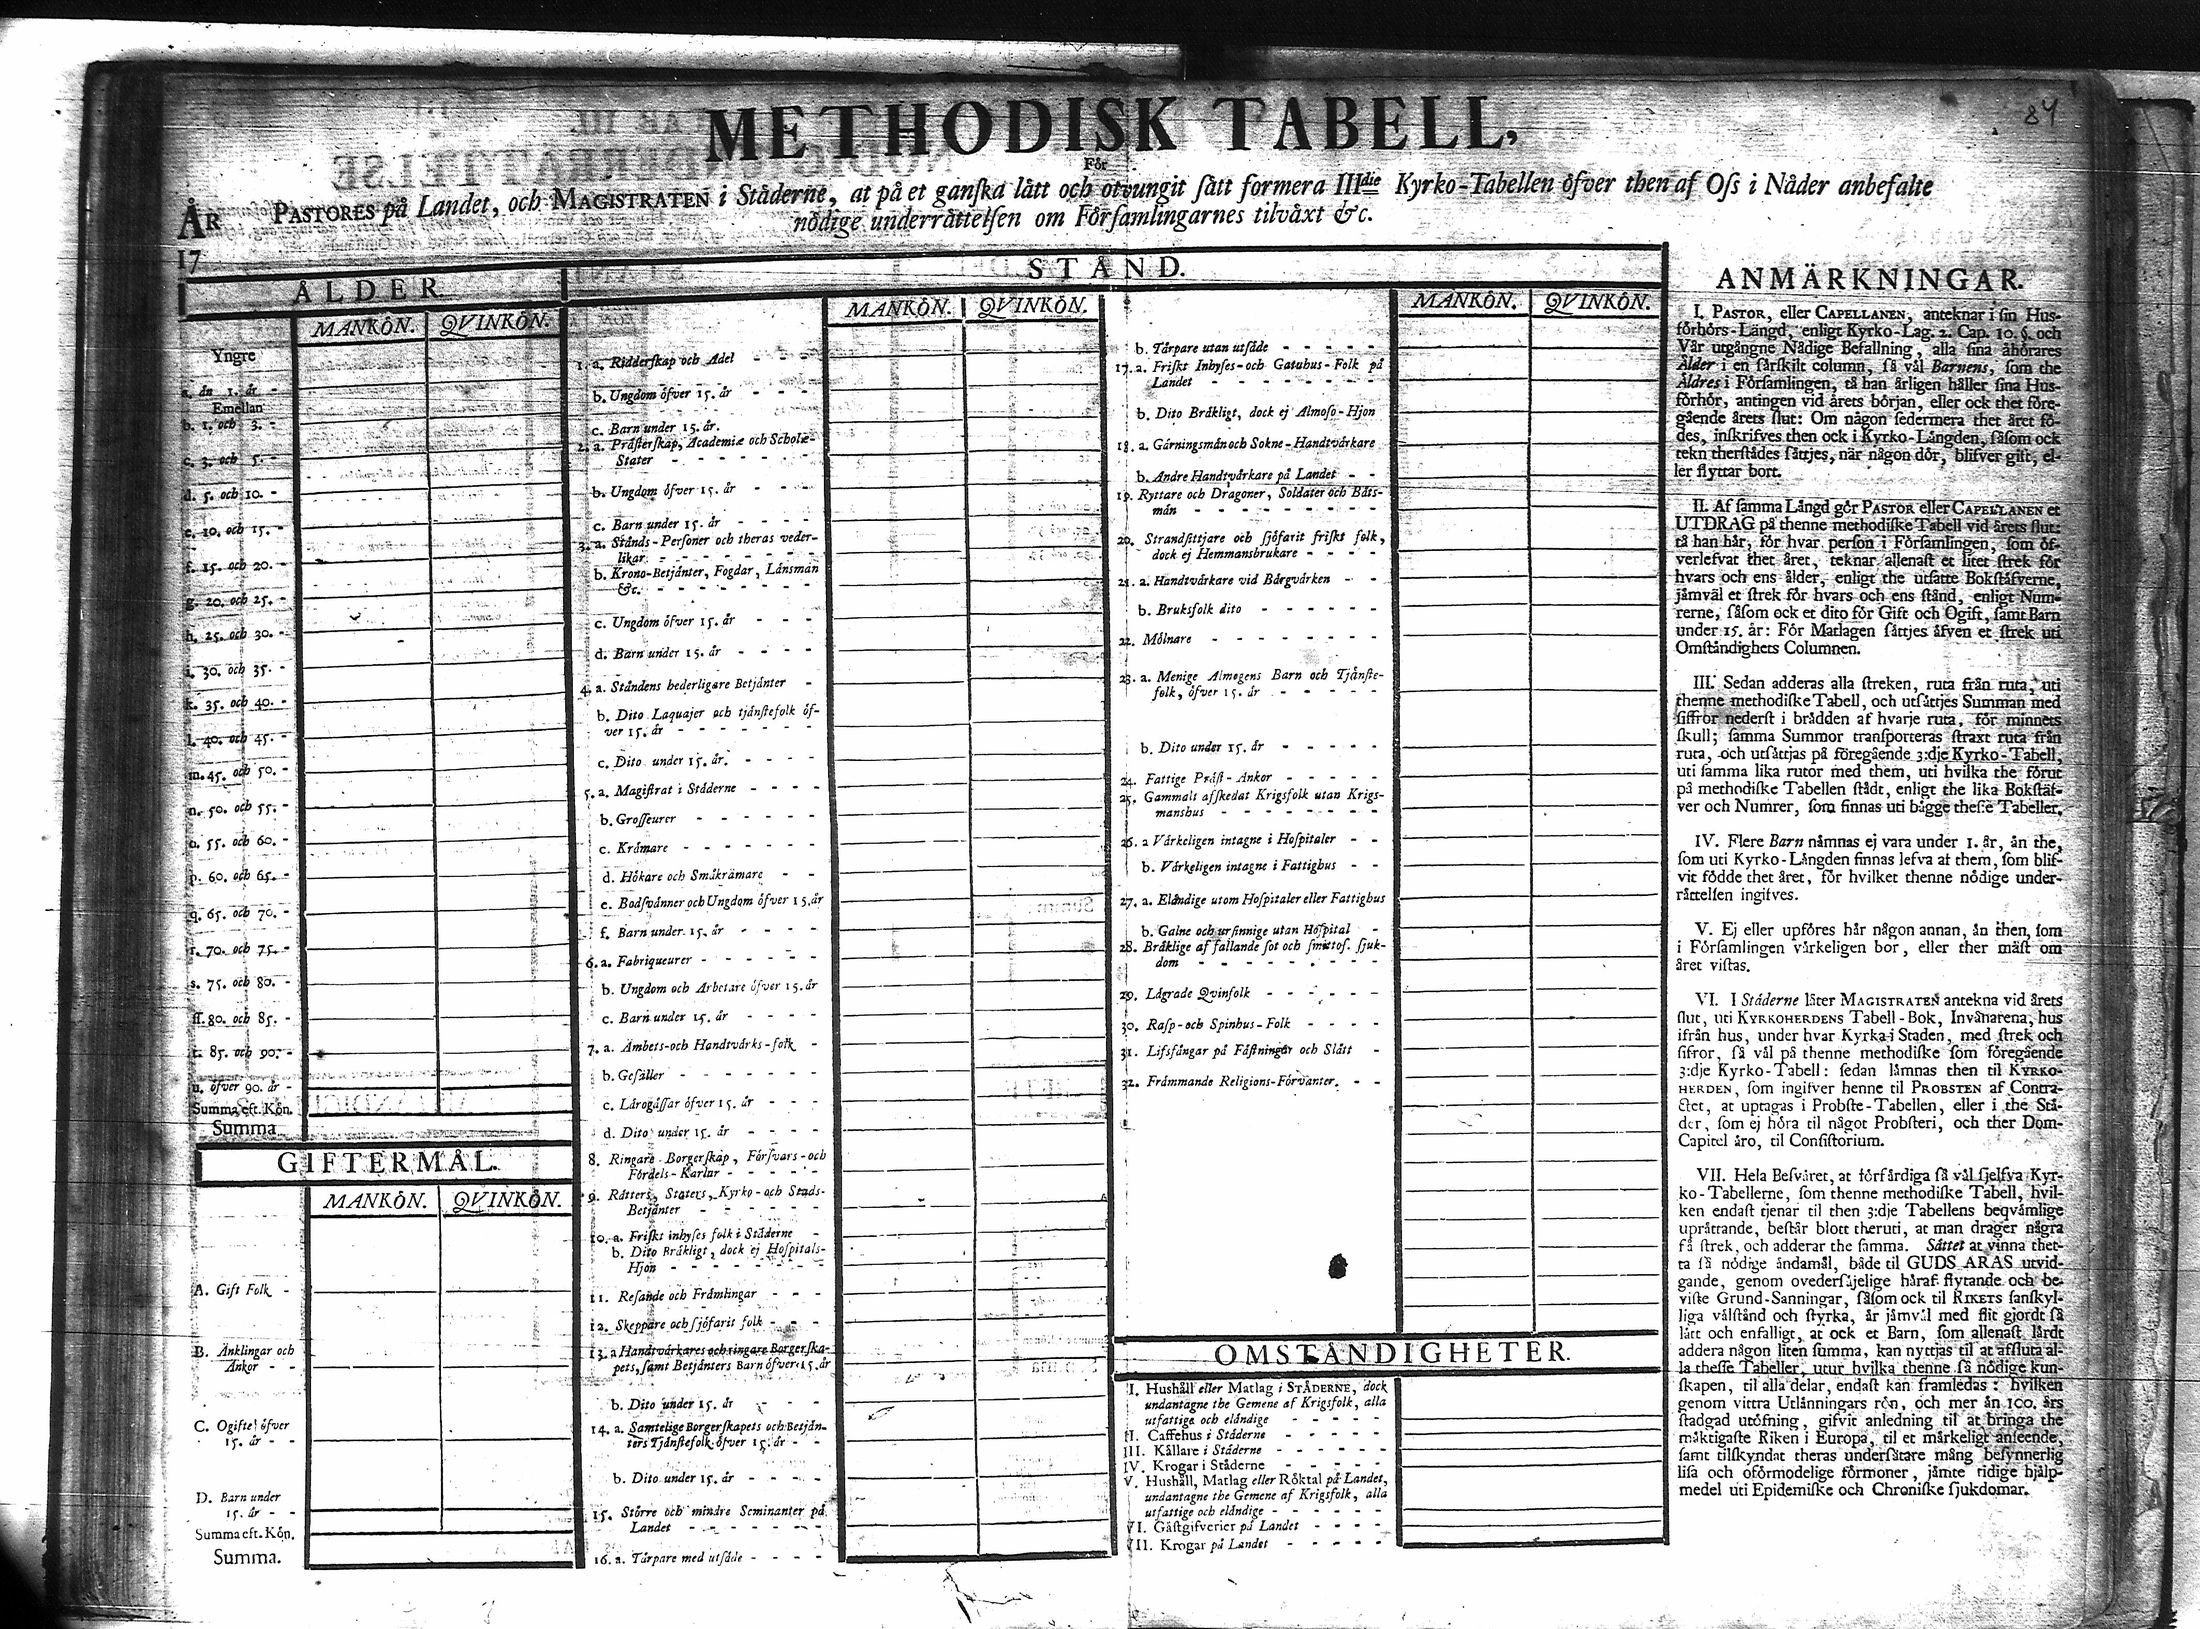 84
METHODISK TABELL,
För
PASTORES på Landet, och MAGISTRATEN i Ståderne, at på et ganſka lått och otvungit ſått formera IIIdie Kyrko-Tabellen öfver then af Oſs i Nåder anbefalte
nödige underråttelſen om Förſamlingarnes tilvåxt &c.
ÅR
17
ÅLDER.
MANKÖN. QVINKÖN.
Yngre
a. ån 1. år -
Emellan
b. 1. och 3. -
c. 3. och 5. -
d. 5. och 10. -
e. 10. och 15. -
f. 15. och 20. -
g. 20. och 25. -
h. 25. och 30. -
i. 30. och 35. -
k. 35. och 40. -
l. 40. och 45. -
m. 45. och 50. -
n. 50. och 55. -
o. 55. och 60. -
p. 60. och 65. -
q. 65. och 70. -
r. 70. och 75. -
s. 75. och 80. -
ſſ. 80. och 85. -
t. 85. och 90. -
u. öfver 90. år -
Summa eft. Kön.
Summa
GIFTERMÅL.
MANKÖN. QVINKÖN.
A. Gift Folk -
B. Änklingar och
Änkor - -
C. Ogifte öfver
15. år - -
D. Barn under
15. år - -
Summa eft. Kön.
Summa.
STÅND.
MANKÖN. QVINKÖN.
1. a. Ridderſkap och Adel - - -
b. Ungdom öfver 15. år - - -
c. Barn under 15. år.
2. a. Pråſterſkap, Academiæ och Scholæ-
Stater - - - - - -
b. Ungdom öfver 15. år - - -
c. Barn under 15. år - - - -
3. a. Stånds-Perſoner och theras veder-
likar - - - - - -
b. Krono-Betjånter, Fogdar, Lånsmån
&c. - - - - - -
c. Ungdom öfver 15. år - - -
d. Barn under 15. år - - - -
4. a. Ståndens hederligare Betjånter -
b. Dito Laquajer och tjånſtefolk öf-
ver 15. år - - - - - -
c. Dito under 15. år. - - - -
5. a. Magiſtrat i Ståderne - - - -
b. Groſſeurer - - - - - -
c. Kråmare - - - - - -
d. Hökare och Småkråmare - -
e. Bodſvånner och Ungdom öfver 15. år
f. Barn under 15. år - - - -
6. a. Fabriqueurer - - - - -
b. Ungdom och Arbetare öfver 15. år
c. Barn under 15. år - - - -
7. a. Ämbets-och Handtvårks-folk -
b. Geſåller - - - - - -
c. Lårogåſſar öfver 15. år - - -
d. Dito under 15. år - - - -
8. Ringare Borgerſkap, Förſvars-och
Fördels-Karlar - - - -
9. Råtters, Staters, Kyrko-och Stads-
Betjånter - - - - -
10. a. Friſkt inhyſes folk i Ståderne -
b. Dito Bråkligt, dock ej Hoſpitals-
Hjon - - - - - - -
11. Reſande och Fråmlingar - - -
12. Skeppare och ſjöfarit folk - - -
13. a. Handtvårkares och ringare Borgerſka-
pets, ſamt Betjånters Barn öfver 15. år
b. Dito under 15. år - - -
14. a. Samtelige Borgerſkapets och Betjån-
ters Tjånſtefolk öfver 15. år - -
b. Dito under 15. år - - - -
15. Större och mindre Seminanter på
Landet - - - - - -
16. a. Tårpare med utſåde - - - -
MANKÖN. QVINKÖN.
b. Tårpare utan utſåde - - - - -
17. a. Friſkt Inhyſes-och Gatuhus-Folk på
Landet - - - - - - - -
b. Dito Bråkligt, dock ej Almoſo-Hjon
18. a. Gårningsmån och Sokne-Handtvårkare
b. Andre Handtvårkare på Landet - -
19. Ryttare och Dragoner, Soldater och Båts-
mån - - - - - - - -
20. Strandſittjare och ſjöfarit friſkt folk,
dock ej Hemmansbrukare - - - -
21. a. Handtvårkare vid Bårgvårken - -
b. Bruksfolk dito - - - - - -
22. Mölnare - - - - - - -
23. a. Menige Almogens Barn och Tjånſte-
folk, öfver 15. år - - - - -
b. Dito under 15. år - - - - -
24. Fattige Pråſt-Ankor - - - - -
25. Gammalt afſkedat Krigsfolk utan Krigs-
manshus - - - - - - -
26. a Vårkeligen intagne i Hoſpitaler - -
b. Vårkeligen intagne i Fattighus - -
27. a. Elåndige utom Hoſpitaler eller Fattighus
b. Galne och urſinnige utan Hoſpital -
28. Bråklige af fallande ſot och ſmittoſ. ſjuk-
dom - - - - - - - -
29. Lågrade Qvinfolk - - - - - -
30. Raſp-och Spinhus-Folk - - - -
31. Lifsfångar på Fåſtningar och Slått -
32. Fråmmande Religions-Förvanter. - -
OMSTÅNDIGHETER.
I. Hushåll eller Matlag i STÅDERNE, dock
undantagne the Gemene af Krigsfolk, alla
utfattige och elåndige - - - - -
II. Caffehus i Ståderne - - - - -
III. Kållare i Ståderne - - - - -
IV. Krogar i Ståderne - - - - -
V. Hushåll, Matlag eller Röktal på Landet,
undantagne the Gemene af Krigsfolk, alla
utfattige och elåndige - - - - -
VI. Gåſtgifverier på Landet - - - -
VII. Krogar på Landet - - - - -
ANMÄRKNINGAR.
I. PASTOR, eller CAPELLANEN, anteknar i ſin Hus-
förhörs-Långd, enligt Kyrko-Lag. 2. Cap. 10. §. och
Vår utgångne Nådige Befallning, alla ſina åhörares
Ålder i en ſårſkilt column, ſå vål Barnens, ſom the
Äldres i Förſamlingen, tå han årligen håller ſina Hus-
förhör, antingen vid årets början, eller ock thet före-
gående årets ſlut: Om någon ſedermera thet året fö-
des, inſkrifves then ock i Kyrko-Långden, ſåſom ock
tekn therſtådes ſåttjes, når någon dör, blifver gift, el-
ler flyttar bort.
II. Af ſamma Långd gör PASTOR eller CAPELLANEN et
UTDRAG på thenne methodiſke Tabell vid årets ſlut:
tå han hår, för hvar perſon i Förſamlingen, ſom öf-
verlefvat thet året, teknar allenaſt et litet ſtrek för
hvars och ens ålder, enligt the utſatte Bokſtåfverne,
jåmvål et ſtrek för hvars och ens ſtånd, enligt Num-
rerne, ſåſom ock et dito för Gift och Ogift, ſamt Barn
under 15. år: För Matlagen ſåttjes åfven et ſtrek uti
Omſtåndighets Columnen.
III. Sedan adderas alla ſtreken, ruta från ruta, uti
thenne methodiſke Tabell, och utſåttjes Summan med
ſiffror nederſt i brådden af hvarje ruta, för minnets
ſkull; ſamma Summor tranſporteras ſtraxt ruta från
ruta, och utſåttjas på föregående 3:dje Kyrko-Tabell,
uti ſamma lika rutor med them, uti hvilka the förut
på methodiſke Tabellen ſtådt, enligt the lika Bokſtåf-
ver och Numrer, ſom finnas uti bågge theſſe Tabeller.
IV. Flere Barn nåmnas ej vara under 1. år, ån the,
ſom uti Kyrko-Långden finnas lefva af them, ſom blif-
vit födde thet året, för hvilket thenne nödige under-
råttelſen ingifves.
V. Ej eller upföres hår någon annan, ån then, ſom
i Förſamlingen vårkeligen bor, eller ther måſt om
året viſtas.
VI. I Ståderne låter MAGISTRATEN antekna vid årets
ſlut, uti KYRKOHERDENS Tabell-Bok, Invånarena, hus
ifrån hus, under hvar Kyrka i Staden, med ſtrek och
ſifror, ſå vål på thenne methodiſke ſom föregående
3:dje Kyrko-Tabell: ſedan låmnas then til KYRKO-
HERDEN, ſom ingifver henne til PROBSTEN af Contra-
ctet, at uptagas i Probſte-Tabellen, eller i the Stå-
der, ſom ej höra til något Probſteri, och ther Dom-
Capitel åro, til Conſiſtorium.
VII. Hela Beſvåret, at förfårdiga ſå vål ſjelfva Kyr-
ko-Tabellerne, ſom thenne methodiſke Tabell, hvil-
ken endaſt tjenar til then 3:dje Tabellens beqvåmlige
upråttande, beſtår blott theruti, at man drager några
få ſtrek, och adderar the ſamma. Såttet at vinna thet-
ta ſå nödige åndamål, både til GUDS ÄRAS utvid-
gande, genom overderſåjelige håraf flytande och be-
viſte Grund-Sanningar, ſåſom ock til RIKETS ſanſkyl-
liga vålſtånd och ſtyrka, år jåmvål med flit gjordt ſå
lått och enfalligt, at ock et Barn, ſom allenaſt lårdt
addera någon liten ſumma, kan nyttjas til at afſluta al-
la theſſe Tabeller, utur hvilka thenne ſå nödige kun-
ſkapen, til alla delar, endaſt kan framledas: hvilken
genom vittra Utlånningars rön, och mer ån 100. års
ſtadgad utöfning, gifvit anledning til at bringa the
måktigaſte Riken i Europa, til et mårkeligt anſeende,
ſamt tilſkyndat theras underſåtare mång beſynnerlig
liſa och oförmodelige förmoner, jåmte tidige hjålp-
medel uti Epidemiſke och Chroniſke ſjukdomar.